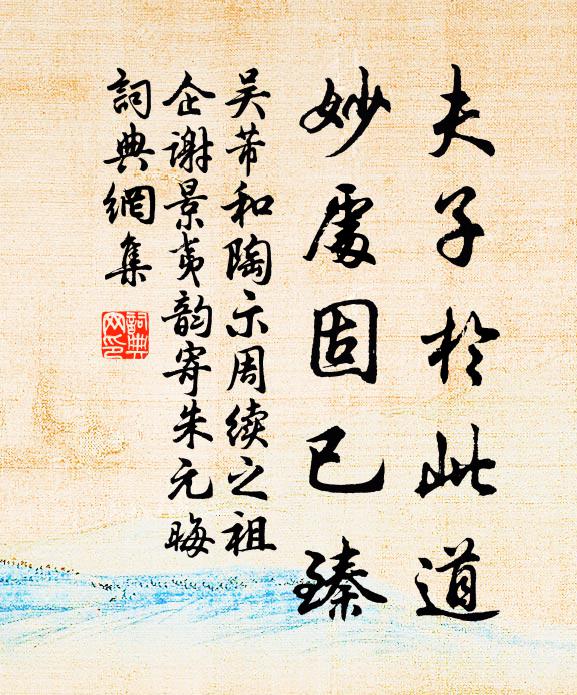 夫子於此道
妙處固已臻
吴芾和陶示周续之祖
企谢景夷韵寄朱元晦
詞典網集
詞典網印